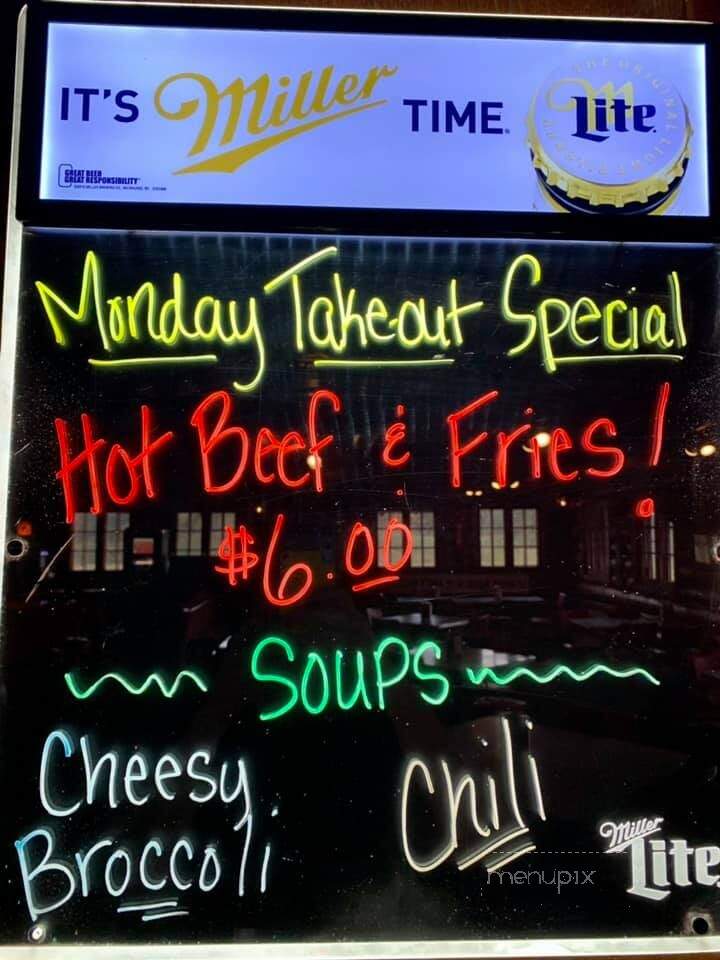 IT'S Miller TIME. Lite
GREAT BEER
GREAT RESPONSIBILITY
Monday Takeout Special
Hot Beef & Fries!
$6.00
SOUPS
Cheesy Chili
Broccoli
Miller
Lite
menupix